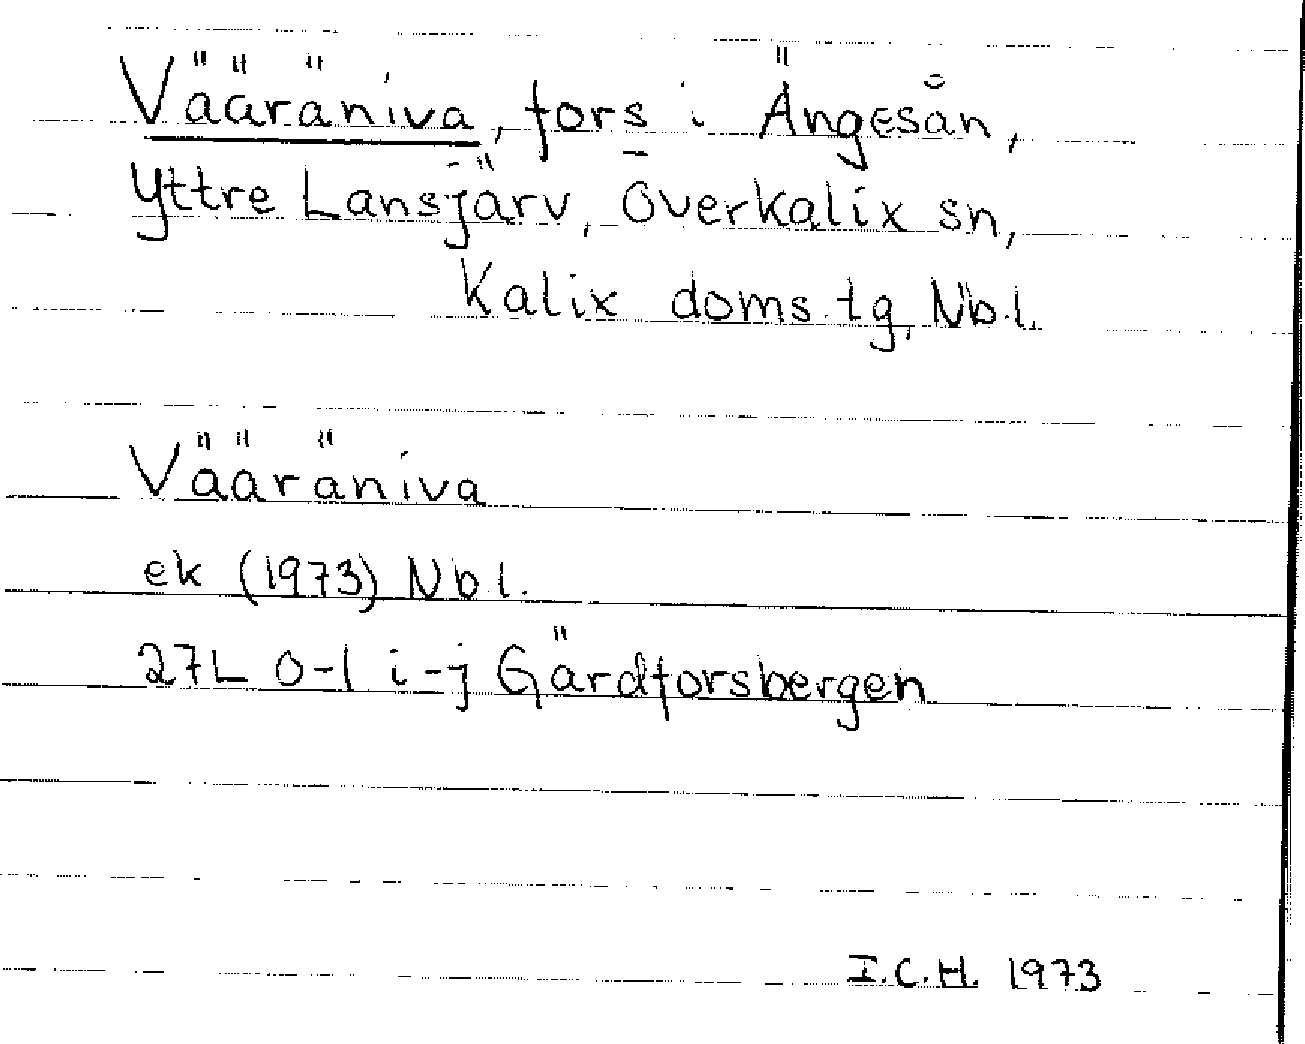 Vääräniva, fors i Ängesån,
Yttre Lansjärv, Överkalix sn,
Kalix doms.tg, Nb.l.
Vääräniva
ek (1973) Nb l.
27L 0-1 i-j Gärdforsbergen
I.C.H. 1973